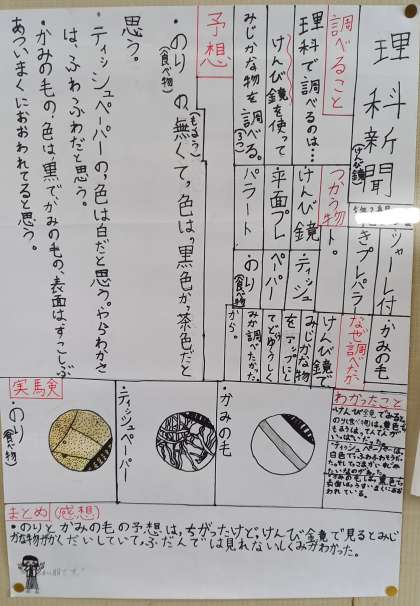 理科新聞
(けんび鏡)
調べること
理科で調べるのは…
けんび鏡を使って
みじかな物を調べる。
(3つ)
つかう物
シャーレ付
きプレパラ
ート。
けんび鏡
平面プレ
パラート
かみの毛
ティッシュ
ペーパー
のり
(食べ物)
なぜ調べたか
けんび鏡で
みじかな物
をアップにし
てどゆうしく
みか調べたかった
から。
予想
・のりの、無くて、色は、黒色か茶色だと
(食べ物)
(もよう)
思う。
・ティッシュペーパーの、色は白だと思う。やわらかさ
は、ふわふわだと思う。
・かみの毛の、色は、黒でかみの毛の、表面は、すこしぶ
あついまくにおおわれてると思う。
実験
・のり
(食べ物)
・ティッシュペーパー
・かみの毛
わかったこと
まとめ(感想)
・のりとかみの毛の予想は、ちがったけど、けんび鏡で見るとみじ
かな物がかくだいしていて、ふだんでは見れないしくみがわかった。